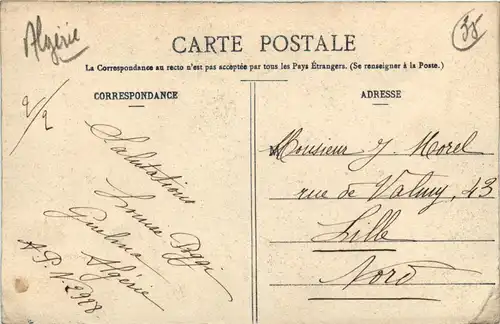 Algérie
35
CARTE POSTALE
La Correspondance au recto n'est pas acceptée par tous les Pays Étrangers. (Se renseigner à la Poste.)
CORRESPONDANCE
2/2
Salutations
Louise
Guelma
Algérie
A.P. N 2998
ADRESSE
Monsieur J. Morel
rue de Valmy, 43
Lille
Nord